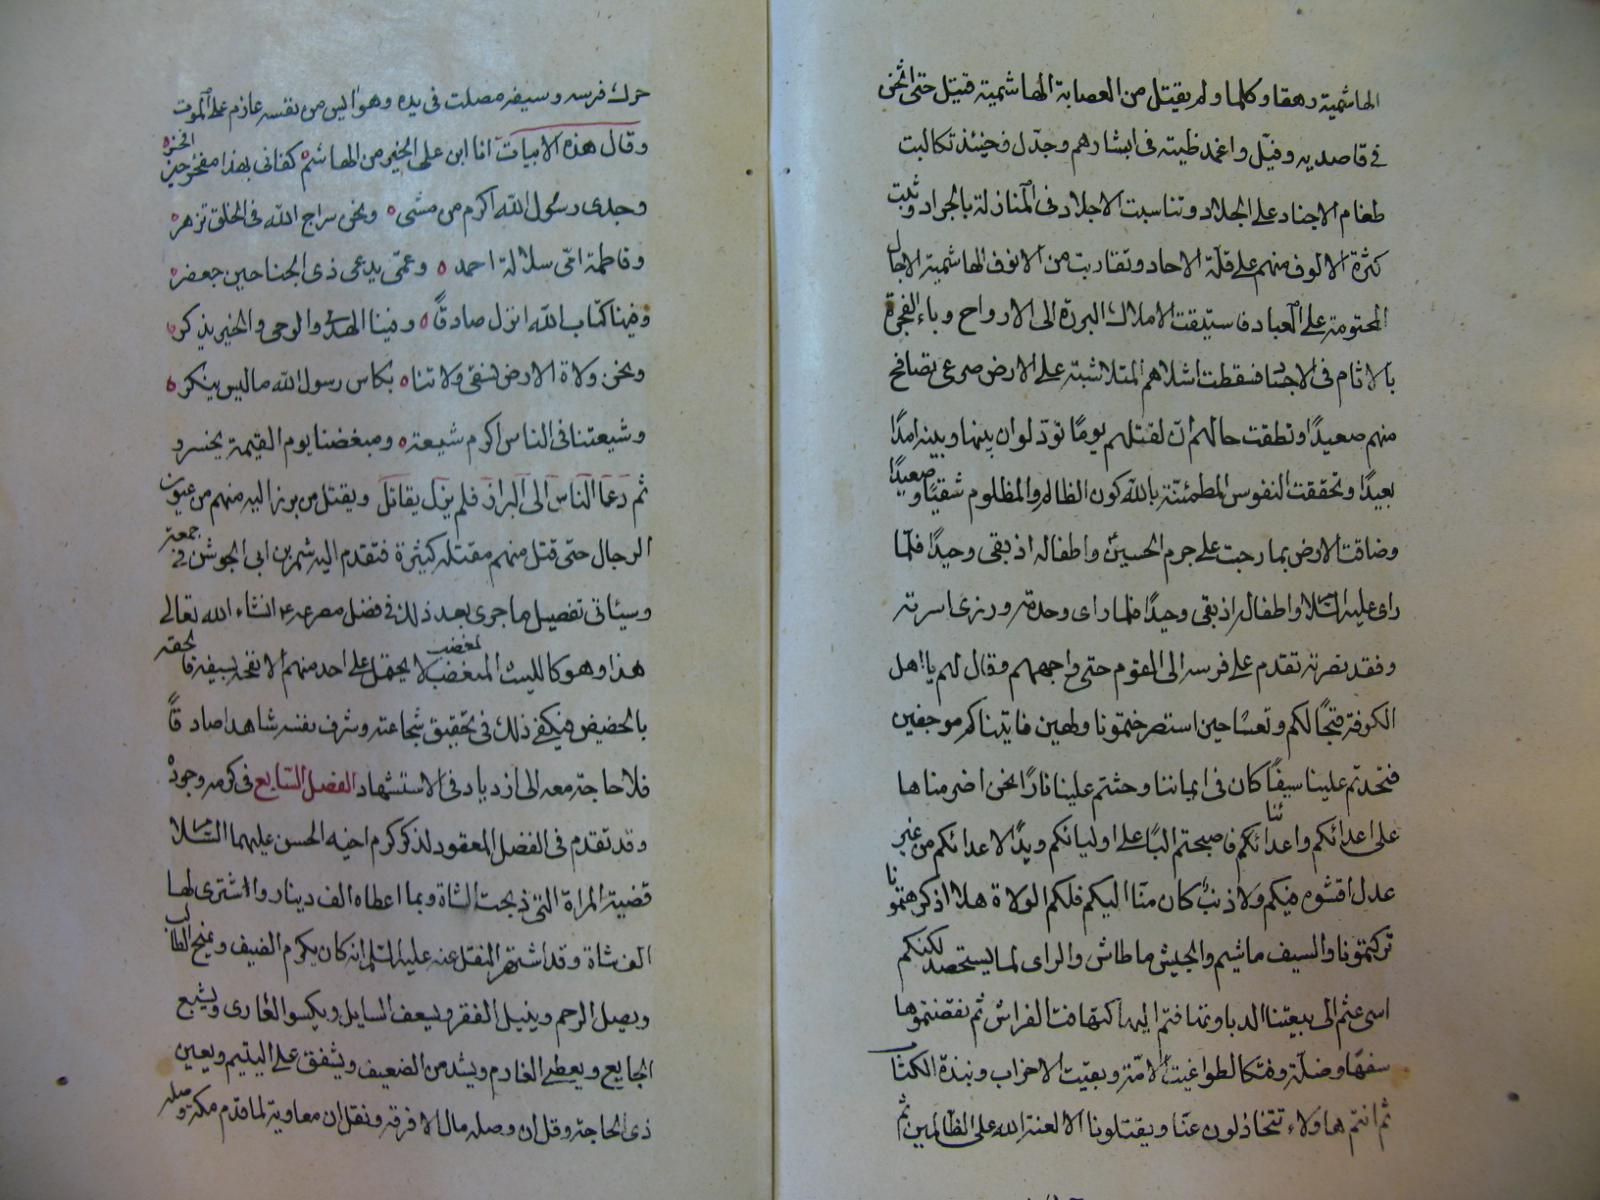 الهاشمية رهقا وكلما ولم يقتل من العصابة الهاشمية قتيل حتى اثخن
في قاصديه وفتل واغمد ظبته في ابشارهم وجدّل فحينئذ تكالبت
طغام الاجناد على الجلاد وتناسبت الاجلاد في المنازلة بالجراد وثبت
كثرة الالوف منهم على قلة الاحاد وتقاربت من الانوف الهاشمية الاجال
المحتومة على العباد فاستبقت الاملاك البررة الى الارواح وباء الفجرة
بالاثام في الاجساد فسقطت اشلاهم المتلاشية على الارض صرعى تصافح
منهم صعيدًا ونطقت حالهم ان لقتلهم يومًا تودّ لو ان بينها وبينه امدًا
بعيدًا وتحققت النفوس المطمئنة بالله كون الظالم والمظلوم شقيًا وسعيدًا
وضاقت الارض بما رحبت على حرم الحسين واطفاله اذ بقي وحيدًا فلما
راى عليه السلام واطفاله اذ بقي وحيدًا فلما راى وحدته ورزى اسرته
وفقد نصرته تقدم على فرسه الى القوم حتى واجههم وقال لهم يا اهل
الكوفة قبحًا لكم وتعسًا حين استصرختمونا ولهين فاتيناكم موجفين
فشحذتم علينا سيفًا كان في ايماننا وحثثتم علينا نارًا نحن اضرمناها
على اعدائكم واعدائنا فاصبحتم البًا على اوليائكم ويدًا لاعدائكم من غير
عدل افشوه فيكم ولا ذنب كان منّا اليكم فلكم الولاة هلا اذ كرهتمونا
تركتمونا والسيف ما شيم والجيش ما طاش والراى لما يستحصد لكنكم
اسرعتم الى بيعتنا الدبا وتهافتم اليها كتهافت الفراش ثم نقضتموها
سفهًا وضلة وفتكا لطواغيت الامّة وبقيت الاحزاب ونبذة الكتاب
ثم انتم هاولاء تتخاذلون عنّا ويقتلونا الا لعنة الله على الظالمين ثم
حرك فرسه وسيفه مصلت في يده وهو ايس من نفسه عازم على الموت
وقال هذه الابيات انا ابن على الخير من ال هاشم كفاني بهذا مفخر حين افخر
وجدى رسول الله اكرم من مشى ونحن سراج الله في الخلق تزهر
وفاطمة امّي سلالة احمد وعمّي يدعى ذى الجناحين جعفر
وفينا كتاب الله انزل صادقًا وفينا الهدى والوحي والخير يذكر
ونحن ولاة الارض نسقي ولاتنا بكاس رسول الله ما ليس ينكر
وشيعتنا في الناس اكرم شيعة ومبغضنا يوم القيمة يخسر
ثم دعا الناس الى البراز فلم يزل يقاتل ويقتل من برز اليه منهم من عيون
الرجال حتى قتل منهم مقتلة كثيرة فتقدم اليه شمر بن ابي الجوشن في جمعته
وسيئاتى تفصيل ما جرى بعد ذلك في فصل مصرعه ع انشاء الله تعالى
هذا وهو كالليث المغضب لا يحمل على احد منهم الا نفحه بسيفه فالحقه
بالحضيض فيكفي ذلك في تحقيق شجاعته وشرف نفسه شاهدا صادقًا
فلا حاجة معه الى ازدياد في الاستشهاد الفصل السّابع في كرمه وجوده
وقد تقدم في الفصل المعقود لذكر كرم اخيه الحسن عليهما السّلام
قضية المراة التي ذبحت الشاة وبما اعطاه الف دينار واشترى لها
الف شاة وقد اشتهر النقل عنه عليه السلم انه كان يكرم الضيف ويمنح الطالب
ويصل الرحم وينيل الفقر ويسعف السايل ويكسو العارى ويشبع
الجايع ويعطى الغارم ويشد من الضعيف ويشفق على اليتيم ويعين
ذى الحاجة وقل ان وصله مال الا فرقه ونقل ان معاوية لما قدم مكة وصله